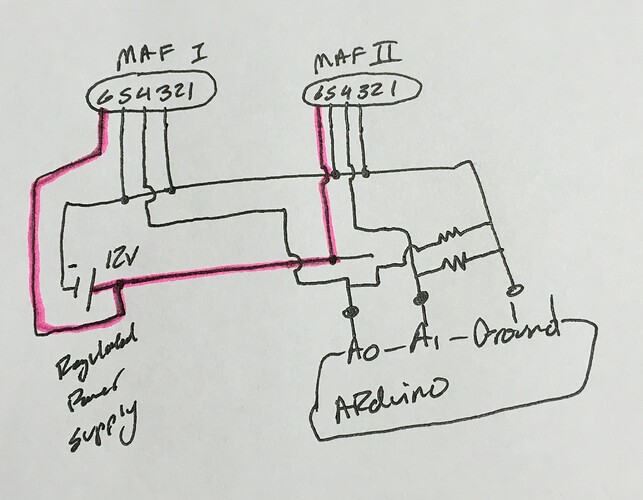 MAF I
MAF II
654321
654321
-
12V
Regulated
Power
Supply
A0 - A1 - Ground
ARduino